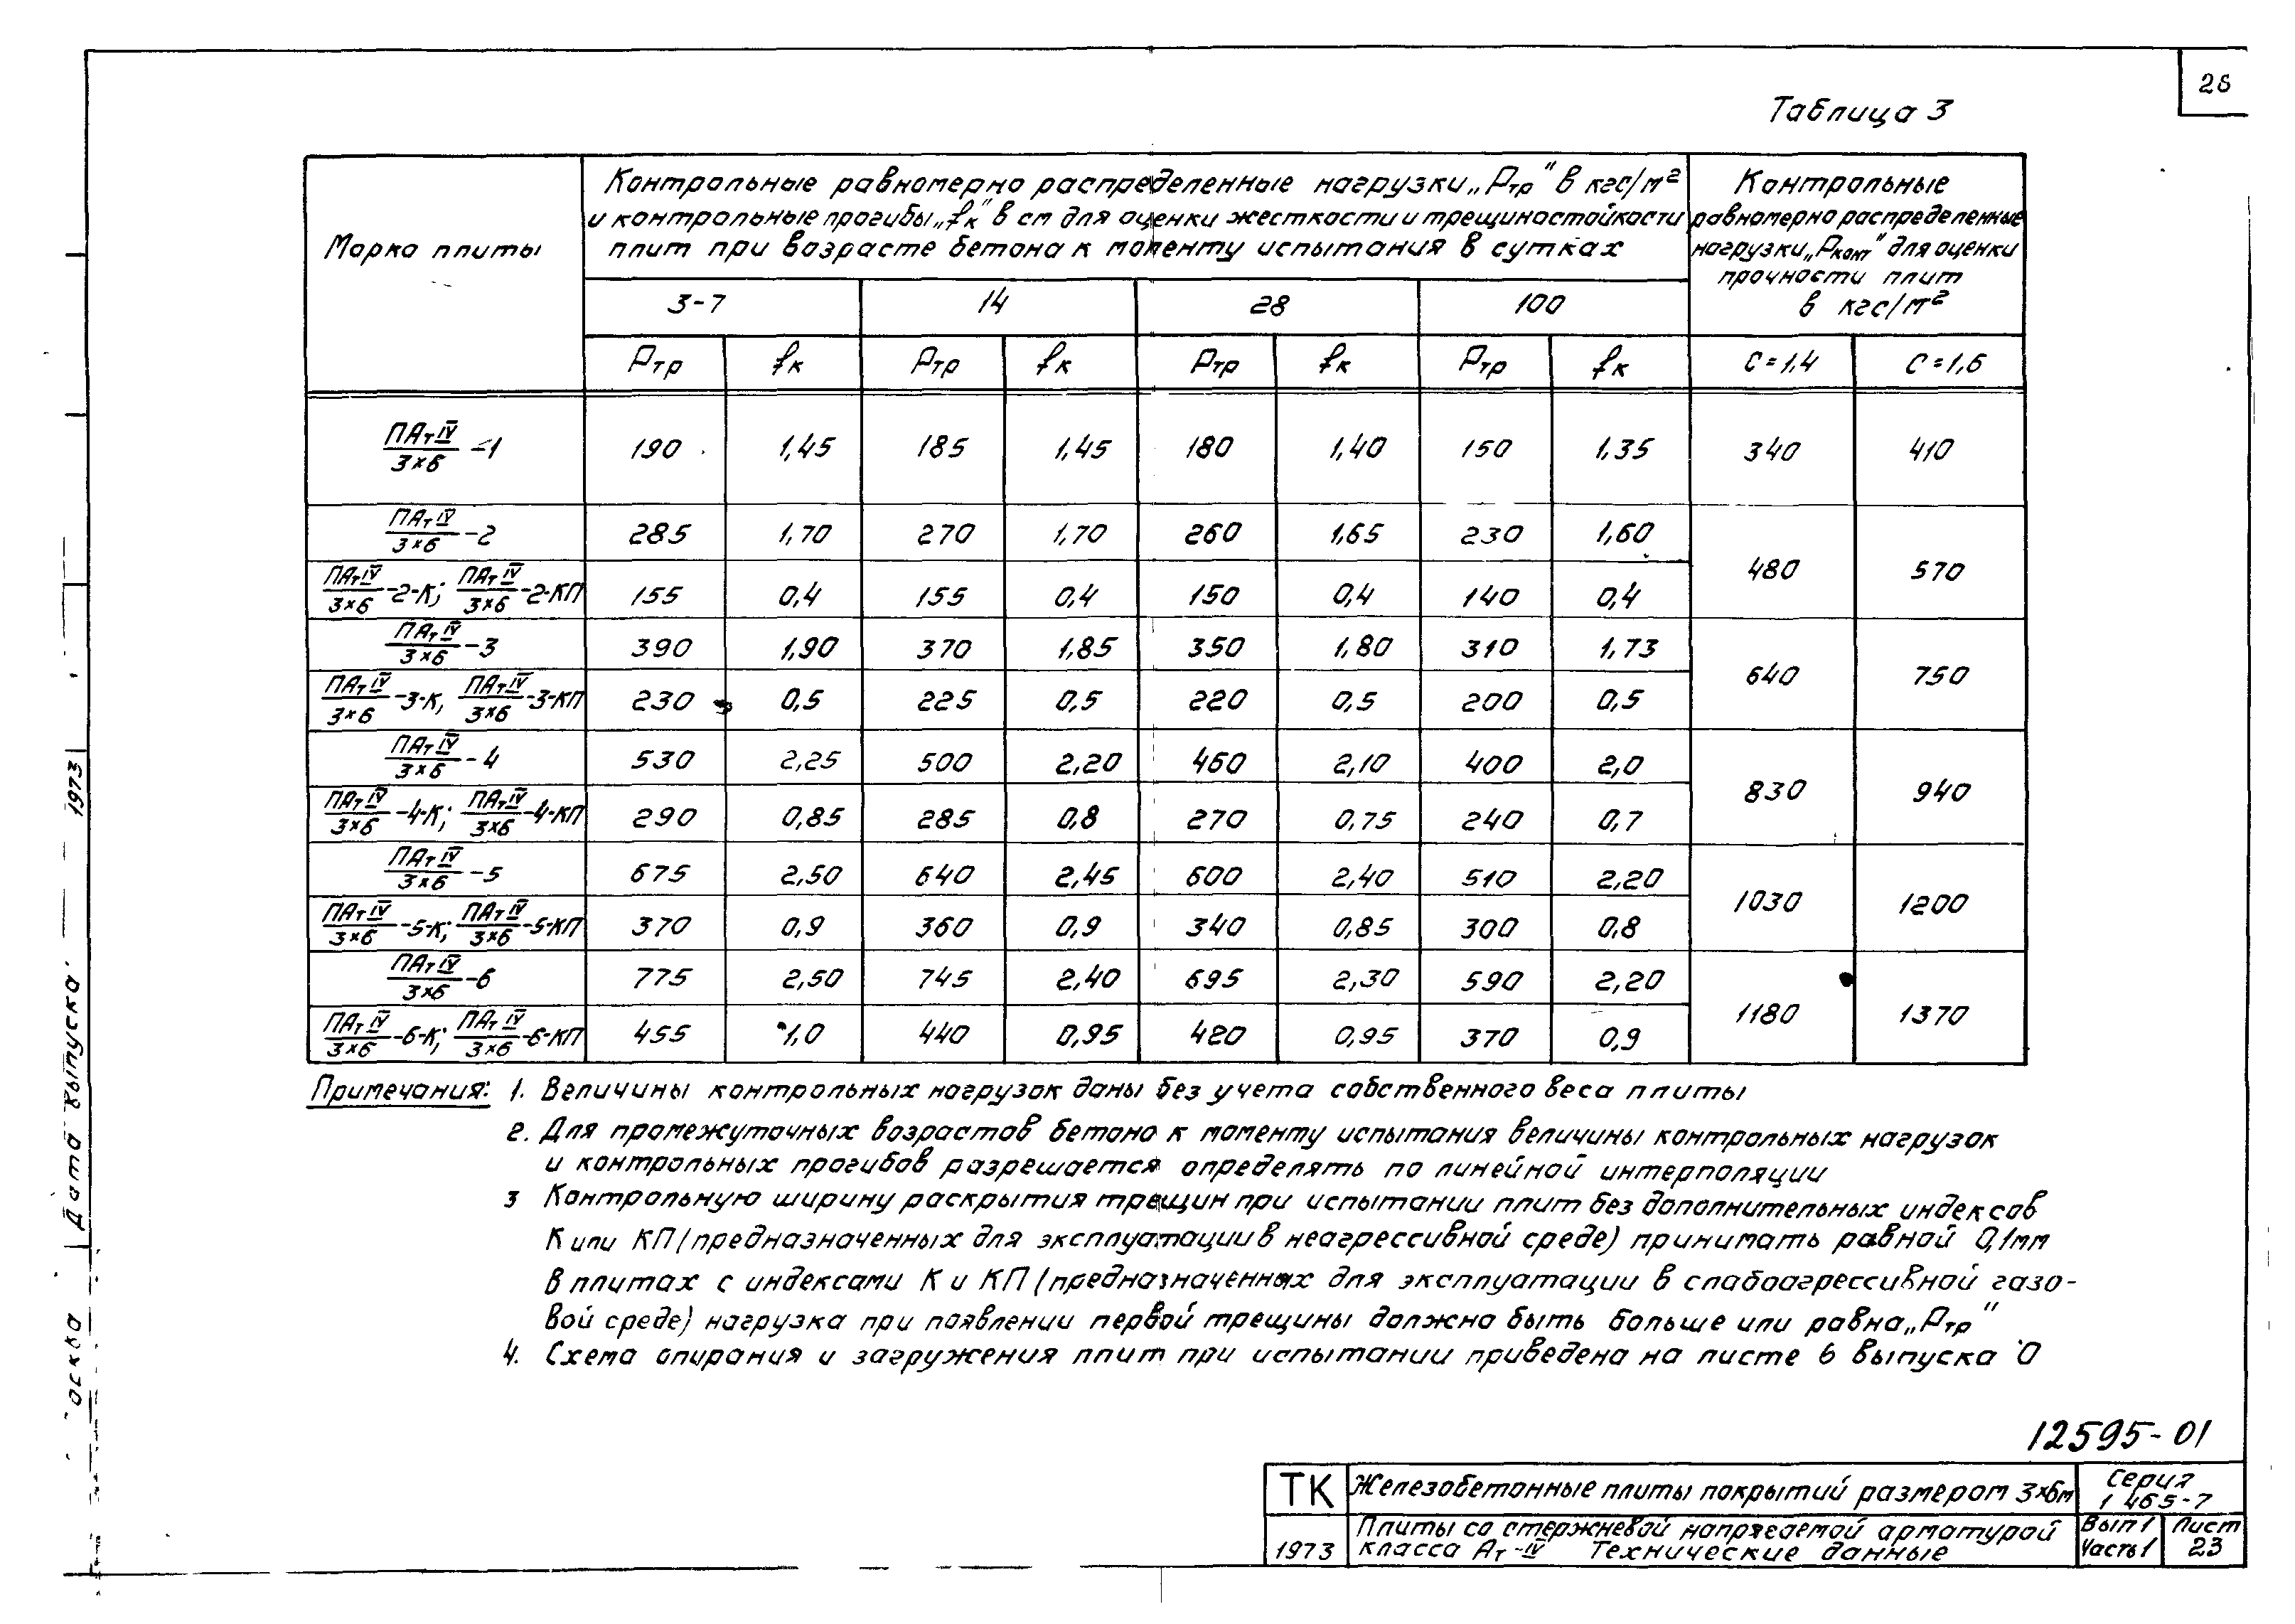 28
Таблица 3
Марка плиты
Контрольные равномерно распределенные нагрузки „Pтр" в кгс/м²
и контрольные прогибы „fк" в см для оценки жесткости и трещиностойкости
плит при возрасте бетона к моменту испытания в сутках
Контрольные
равномерно распределенные
нагрузки „Pконт" для оценки
прочности плит
в кгс/м²
3-7 14 28 100
Pтр fк Pтр fк Pтр fк Pтр fк C=1,4 C=1,6
ПАтIV/3×6 -1 190 1,45 185 1,45 180 1,40 150 1,35 340 410
ПАтIV/3×6 -2 285 1,70 270 1,70 260 1,65 230 1,60 480 570
ПАтIV/3×6 -2-К; ПАтIV/3×6 -2-КП 155 0,4 155 0,4 150 0,4 140 0,4
ПАтIV/3×6 -3 390 1,90 370 1,85 350 1,80 310 1,73 640 750
ПАтIV/3×6 -3-К, ПАтIV/3×6 -3-КП 230 0,5 225 0,5 220 0,5 200 0,5
ПАтIV/3×6 -4 530 2,25 500 2,20 460 2,10 400 2,0 830 940
ПАтIV/3×6 -4-К; ПАтIV/3×6 -4-КП 290 0,85 285 0,8 270 0,75 240 0,7
ПАтIV/3×6 -5 675 2,50 640 2,45 600 2,40 510 2,20 1030 1200
ПАтIV/3×6 -5-К; ПАтIV/3×6 -5-КП 370 0,9 360 0,9 340 0,85 300 0,8
ПАтIV/3×6 -6 775 2,50 745 2,40 695 2,30 590 2,20 1180 1370
ПАтIV/3×6 -6-К; ПАтIV/3×6 -6-КП 455 1,0 440 0,95 420 0,95 370 0,9
Примечания: 1. Величины контрольных нагрузок даны без учета собственного веса плиты
2. Для промежуточных возрастов бетона к моменту испытания величины контрольных нагрузок
и контрольных прогибов разрешается определять по линейной интерполяции
3 Контрольную ширину раскрытия трещин при испытании плит без дополнительных индексов
К или КП (предназначенных для эксплуатации в неагрессивной среде) принимать равной 0,1мм
В плитах с индексами К и КП (предназначенных для эксплуатации в слабоагрессивной газо-
вой среде) нагрузка при появлении первой трещины должна быть больше или равна „Pтр"
4. Схема опирания и загружения плит при испытании приведена на листе 6 выпуска 0
12595-01
ТК Железобетонные плиты покрытий размером 3×6м Серия
1 465-7
1973 Плиты со стержневой напрягаемой арматурой
класса Ат-IV Технические данные
Вып 1 Лист
Часть 1 23
Дата выпуска 1973
осква